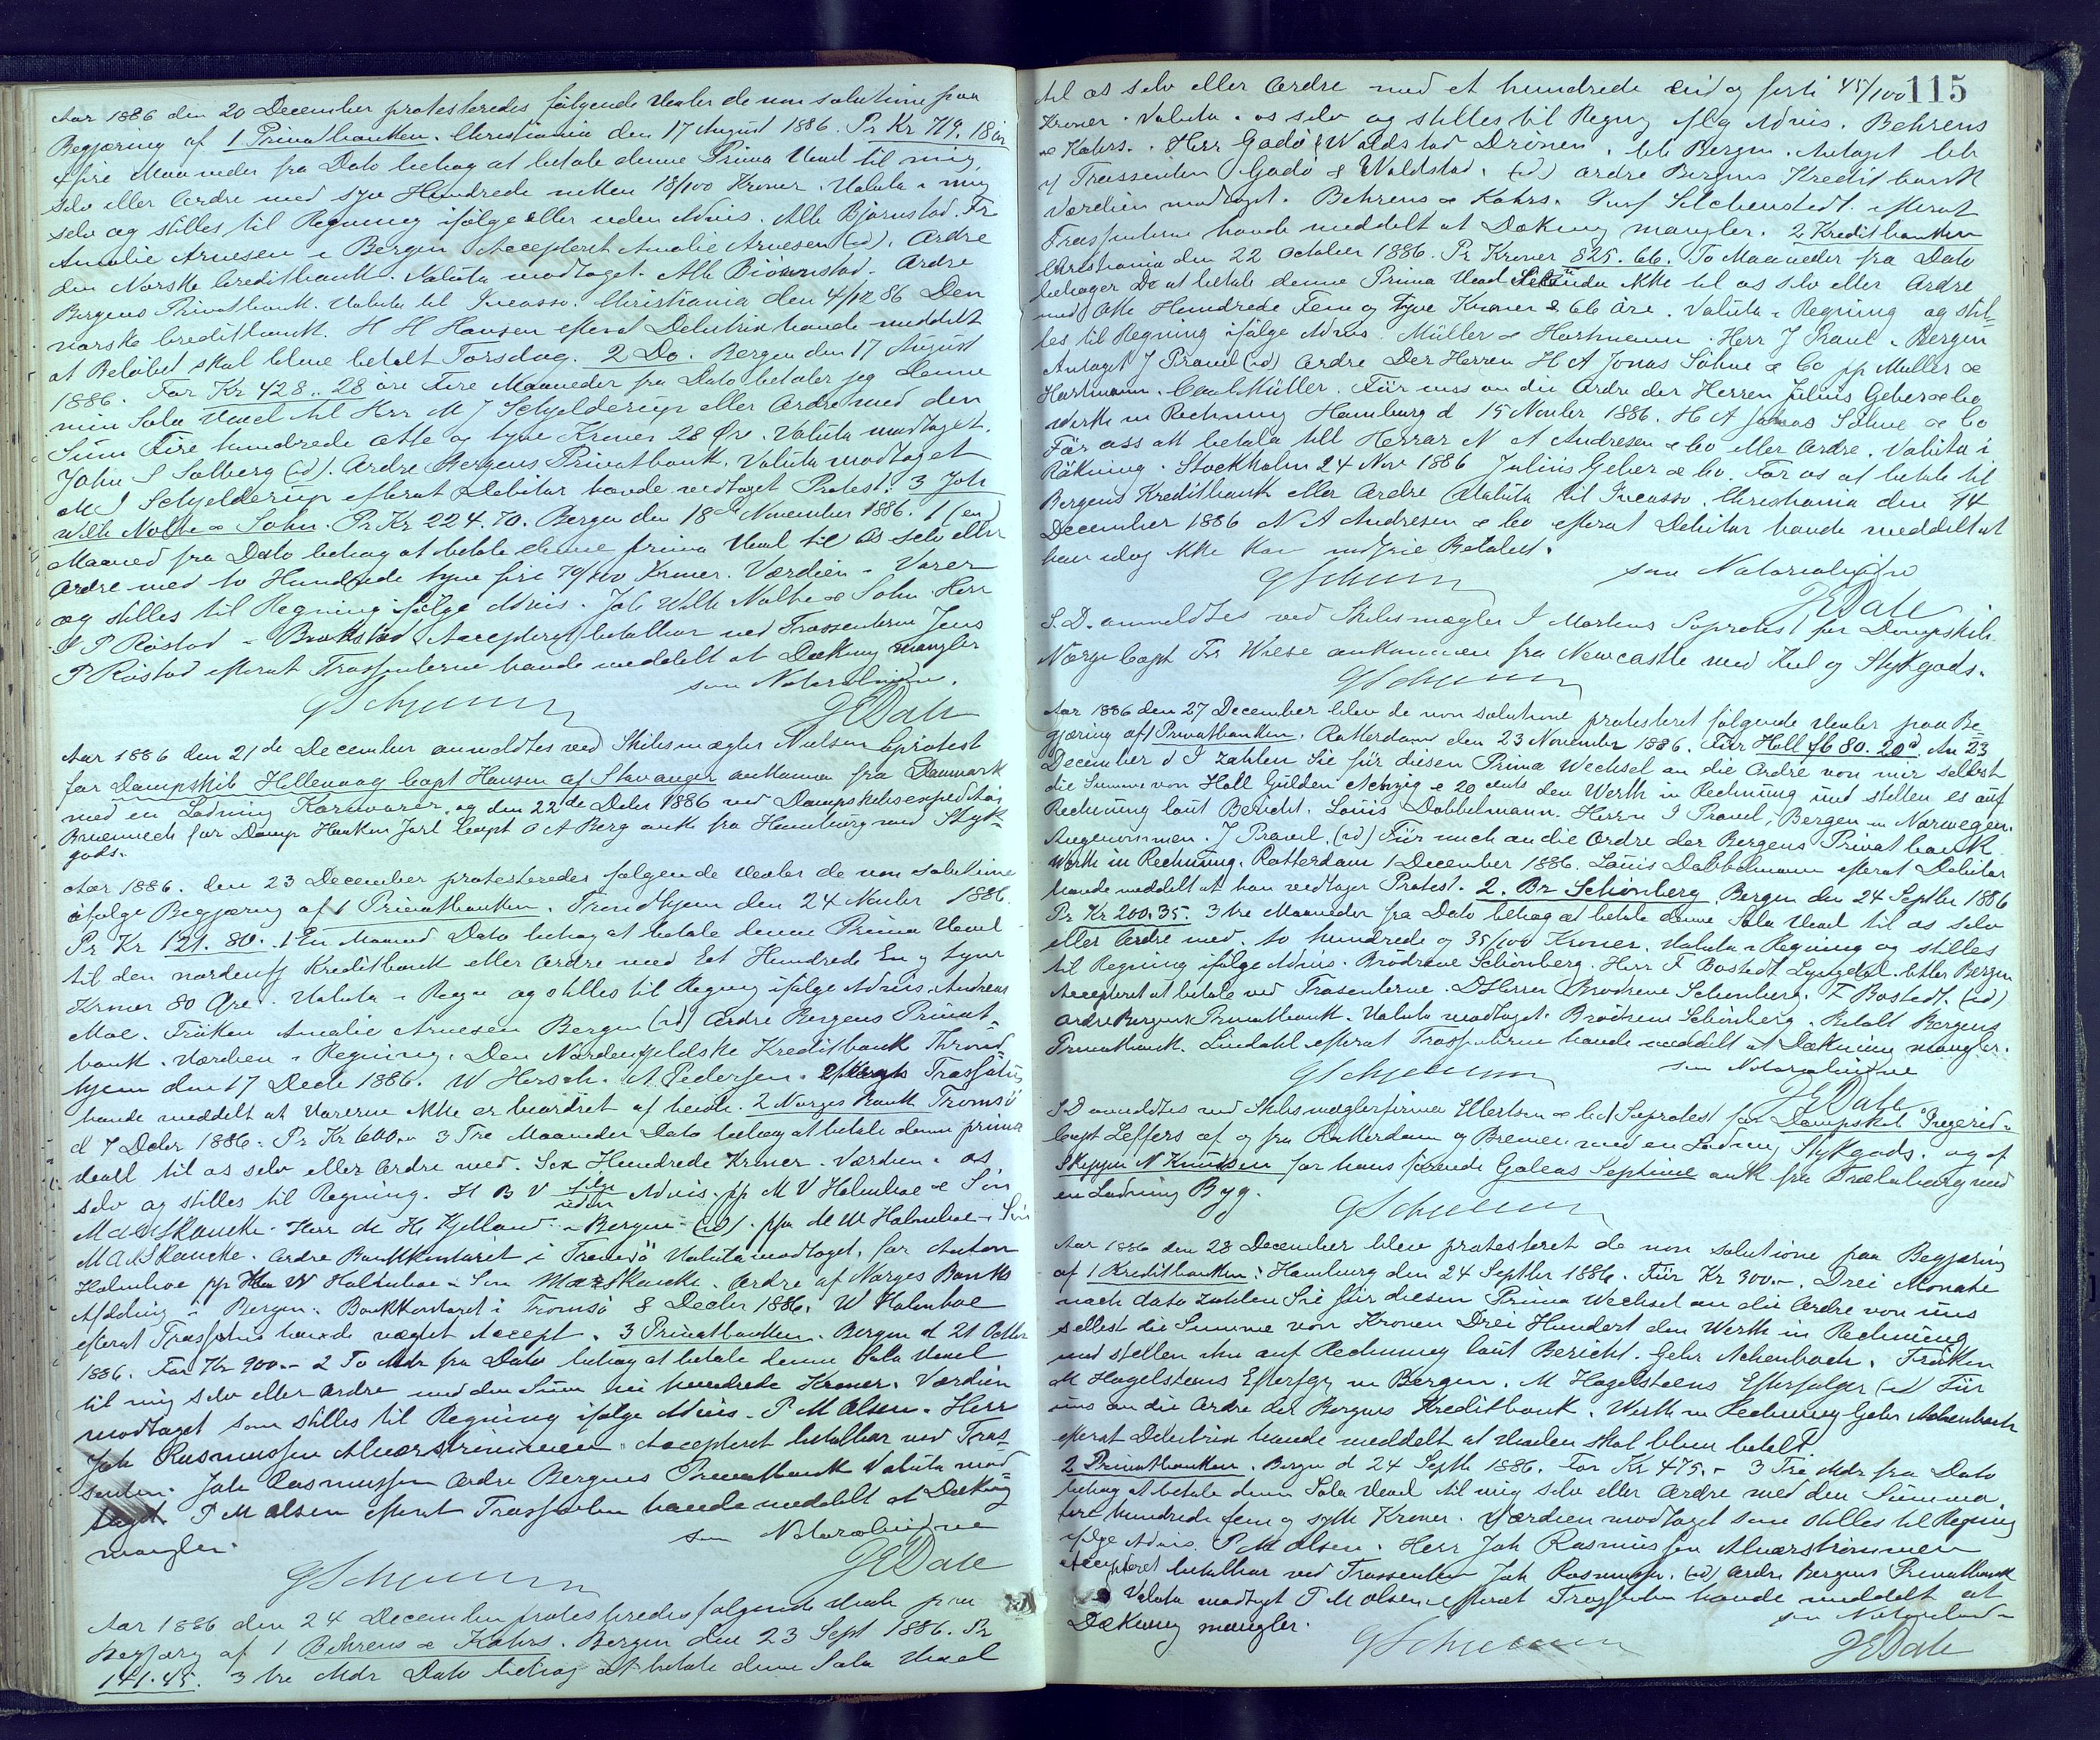 Aar 1886 den 20 December protesteredes følgende Vexler de non solutione paa
Begjæring af 1 Privatbanken. Christiania den 17 August 1886. Pr Kr 719. 18 ør
4 fire Maaneder fra Dato behag at betale denne Prima Vexel til mig
selv eller Ordre med syv Hundrede nitten 18/100 Kroner. Valuta i mig
selv og stilles til Regning ifølge eller uden Advis. Alb Bjørnstad. Frø
Amalie Arnesen i Bergen Accepteret Amalie Arnesen (id). Ordre
den Norske Creditbank. Valuta modtaget. Alb Biørnstad. Ordre
Bergens Privatbank. Valuta til Incasso. Christiania den 4/12 86 Den
norske Creditbank. H H Hansen efterat Debitrix havde meddelt
at Beløbet skal blive betalt Torsdag. 2 Do. Bergen den 17 August
1886. For Kr 428.. 28 øre Fire Maaneder fra Dato betaler jeg denne
min Sola Vexel til Herr M J Schjelderup eller Ordre med den
Sum Fire hundrede otte og tyve Kroner 28 Øre. Valuta modtaget.
John S Solberg (id). Ordre Bergens Privatbank. Valuta modtaget
M J Schjelderup efterat Debitor havde vedtaget Protest. 3 Joh
Wilh Nolthe & Sohn. Pr Kr 224. 70. Bergen den 18de November 1886. 1 (en)
Maaned fra Dato behag at betale denne prima Vexel til os selv eller
Ordre med to Hundrede tyve fire 70/100 Kroner. Værdien i Varer
og stilles til Regning ifølge Advis. Joh Wilh Nolthe & Sohn Herr
J P Røstad i Brækstad Accepteret betalbar ved Trassenterne Jens
P Røstad efterat Trassenterne havde meddelt at Dækning mangler
som Notarialvidne.
G Schjelderup JEDale
Aar 1886 den 21de December anmeldtes ved Skibsmægler Nielsen Søprotest
for Dampskib Hillevaag Capt Hansen af Stavanger ankommen fra Danmark
med en Ladning Kornvarer, og den 22de Decbr 1886 ved Dampskibsexpeditør
for Damp Haakon Jarl Capt O A Berg ank fra Hamburg med Styk-
gods.
Aar 1886. den 23 December protesteredes følgende Vexler de non solutione
ifølge Begjæring af 1 Privatbanken. Trondhjem den 24 Novbr 1886.
Pr Kr 121. 80. 1 En Maaned Dato behag at betale denne Prima Vexel
til den nordenfj Kreditbank eller Ordre med Et Hundrede En og tyve
Kroner 80 Øre. Valuta i Regn og stilles til Regning ifølge Advis. Andreas
Moe. Frøken Amalie Arnesen Bergen (id) Ordre Bergens Privat-
bank. Værdien i Regning. Den Nordenfjeldske Kreditbank Thrond-
hjem den 17 Decb 1886. W Hersch. A Pedersen. efterat Trassatus
havde meddelt at Varerne ikke er beordret af hende. 2 Norges Bank Tromsø
d 7 Decbr 1886. Pr Kr 600.- 3 Tre Maaneder Dato behag at betale denne prima
Vexel til os selv eller Ordre med. Sex Hundrede Kroner. Værdien i os
selv og stilles til Regning. H B V ifølge Advis. pp M V Holmboe & Søn
uden
Herr M H Kjelland i Bergen (id). ppa M W Holmboe & Søn
Ordre Bankkontoret i Tromsø Valuta modtaget. for Anton
Holmboe pp M W Holmboe & Søn Ordre af Norges Banks
Afdeling i Bergen. Bankkontoret i Tromsø 8 Decbr 1886. W Holmboe
efterat Trassatus havde nægtet Accept. 3 Privatbanken. Bergen d 21 Octbr
1886. For Kr 900.- 2 To Mdr fra Dato behag at betale denne Sola Vexel
til mig selv eller Ordre med den Sum ni hundrede Kroner. Værdien
modtaget som stilles til Regning ifølge Advis. P M Olsen. Herr
Joh Rasmussen Alværstrømmen. Accepteret betalbar ved Tras-
senten. Joh Rasmussen Ordre Bergens Privatbank Valuta mod
taget P M Olsen efterat Trassenten havde meddelt at Dækning
mangler. som Notarialvidne
G Schjelderup JEDale
Aar 1886 den 24 December protesteredes følgende Vexler paa
Begjæring af 1 Behrens & Kahrs. Bergen den 23 Sept 1886. Pr
141.45. 3 tre Mdr Dato behag at betale denne Sola Vexel
115
til os selv eller Ordre med et hundrede en og førti 45/100
Kroner. Valuta i os selv og stilles til Regng iflg Advis. Behrens
& Kahrs. Herr Gadø & Waldstad Drönen. bb Bergen. Antaget bb
v/ Trassenten Gadö & Waldstad. (id) Ordre Bergens Kreditbank
Værdien modtaget. Behrens & Kahrs. efterat
Trassenterne havde meddelt at Dækning mangler. 2 Kreditbanken
Christiania den 22 October 1886. Pr Kroner 825. 66. To Maaneder fra Dato
behager De at betale denne Prima Vexel Secunda ikke til os selv eller Ordre
med Otte Hundrede Fem og Tyve Kroner & 66 øre. Valuta i Regning og stil-
les til Regning ifølge Advis. Müller & Hartmann. Herr J Pravel i Bergen
Antaget J Pravel (id) Ordre Der Herren H A Jonas Söhne & Co pp Müller &
Hartmann. Carl Müller. Für uns an die Ordre der Herren Julius Geber & Co
Werth in Rechnung Hamburg d 15 Novbr 1886. H A Jonas Söhne & Co
För oss att betala till Herrar N A Andresen & Co eller Ordre. Valuta i
Räkning. Stockholm 24 Nov 1886 Julius Geber & Co. For os at betale til
Bergens Kreditbank eller Ordre Valuta til Incasso. Christiania den 14
December 1886 N A Andresen & Co efterat Debitor havde meddelt at
han idag ikke kan indfrie Beløbet.
som Notarialvidne
G Schjelderup JEDale
S. D. anmeldtes ved Skibsmægler J Martens Søprotest for Dampskib
Norge Capt Fr Wiese ankommen fra Newcastle med Kul og Stykgods.
G Schjelderup
Aar 1886 den 27 December blev de non solutione protesteret følgende Vexler paa Be-
gjæring af 1 Privatbanken. Rotterdam den 23 November 1886. Für Holl f 80. 20 ct. An 23
December d J zahlen Sie für diesen Prima Wechsel an die Ordre von mir selbst
die Summe von Holl Gulden Achzig & 20 cents den Werth in Rechnung und stellen es auf
Rechnung laut Bericht. Louis Dobbelmann. Herrn J Pravel, Bergen in Norwegen.
Angenommen. J Pravel. (id) Für mich an die Ordre der Bergens Privatbank
Werth in Rechnung. Rotterdam 1 December 1886. Louis Dobbelmann efterat Debitor
havde meddelt at han vedtager Protest. 2. Br Schønberg. Bergen den 24 Septbr 1886
Pr Kr 200.35. 3 tre Maaneder fra Dato behag at betale denne Sola Vexel til os selv
eller Ordre med. to hundrede og 35/100 Kroner. Valuta i Regning og stilles
til Regning ifølge Advis. Brødrene Schönberg. Herr F Bostedt Lyngdal. Bergen
Accepteret at betale ved Trasenterne. DHerrer Brødrene Schønberg. F Bostedt. (id)
Ordre Bergens Privatbank. Valuta modtaget. Brödrene Schönberg. Betalt Bergens
Privatbank. Lindahl efterat Trassenterne havde meddelt at Dækning mangler.
som Notarialvidne
G Schjelderup JEDale
S D anmeldtes ved Skibsmæglerfirma Ellertsen & Co 1 Søprotest for Dampskib "Ingerid"
Capt Leffers af og fra Rotterdam og Bremen med en Ladning Stykgods. og af
Skipper N Knudsen for hans førende Galeas Septime ank fra Trælleborg med
en Ladning Byg.
G Schjelderup
Aar 1886 den 28 December blev protesteret de non solutione paa Begjæring
af 1 Kreditbanken: Hamburg den 24 Septbr 1886. Für Kr 300.-. Drei Monate
nach dato zahlen Sie für diesen Prima Wechsel an die Ordre von uns
selbst die Summe von Kronen Drei Hundert den Werth in Rechnung
und stellen ihn auf Rechnung laut Bericht. Gebr Achenbach. Frøken
M Hagelsteens Efterfgr in Bergen. M Hagelsteens Efterfølger (id) Für
uns an die Ordre der Bergens Kreditbank. Werth in Rechnung Gebr Achenbach
efterat Debitrix havde meddelt at Vexlen skal blive betalt.
2 Privatbanken. Bergen d 24 Septb 1886. For Kr 475.- 3 Tre Mdr fra Dato
behag at betale denne Sola Vexel til mig selv eller Ordre med den Summa
fire hundrede fem og sytti Kroner. Værdien modtaget som stilles til Regning
ifølge Advis. P M Olsen. Herr Joh Rasmussen Alværstrømmen
Accepteret betalbar ved Trassenten Joh Rasmussen. (id) Ordre Bergens Privatbank
Valuta modtaget P M Olsen efterat Trassenten havde meddelt at
Dækning mangler. som Notarialvidne
G Schjelderup JEDale